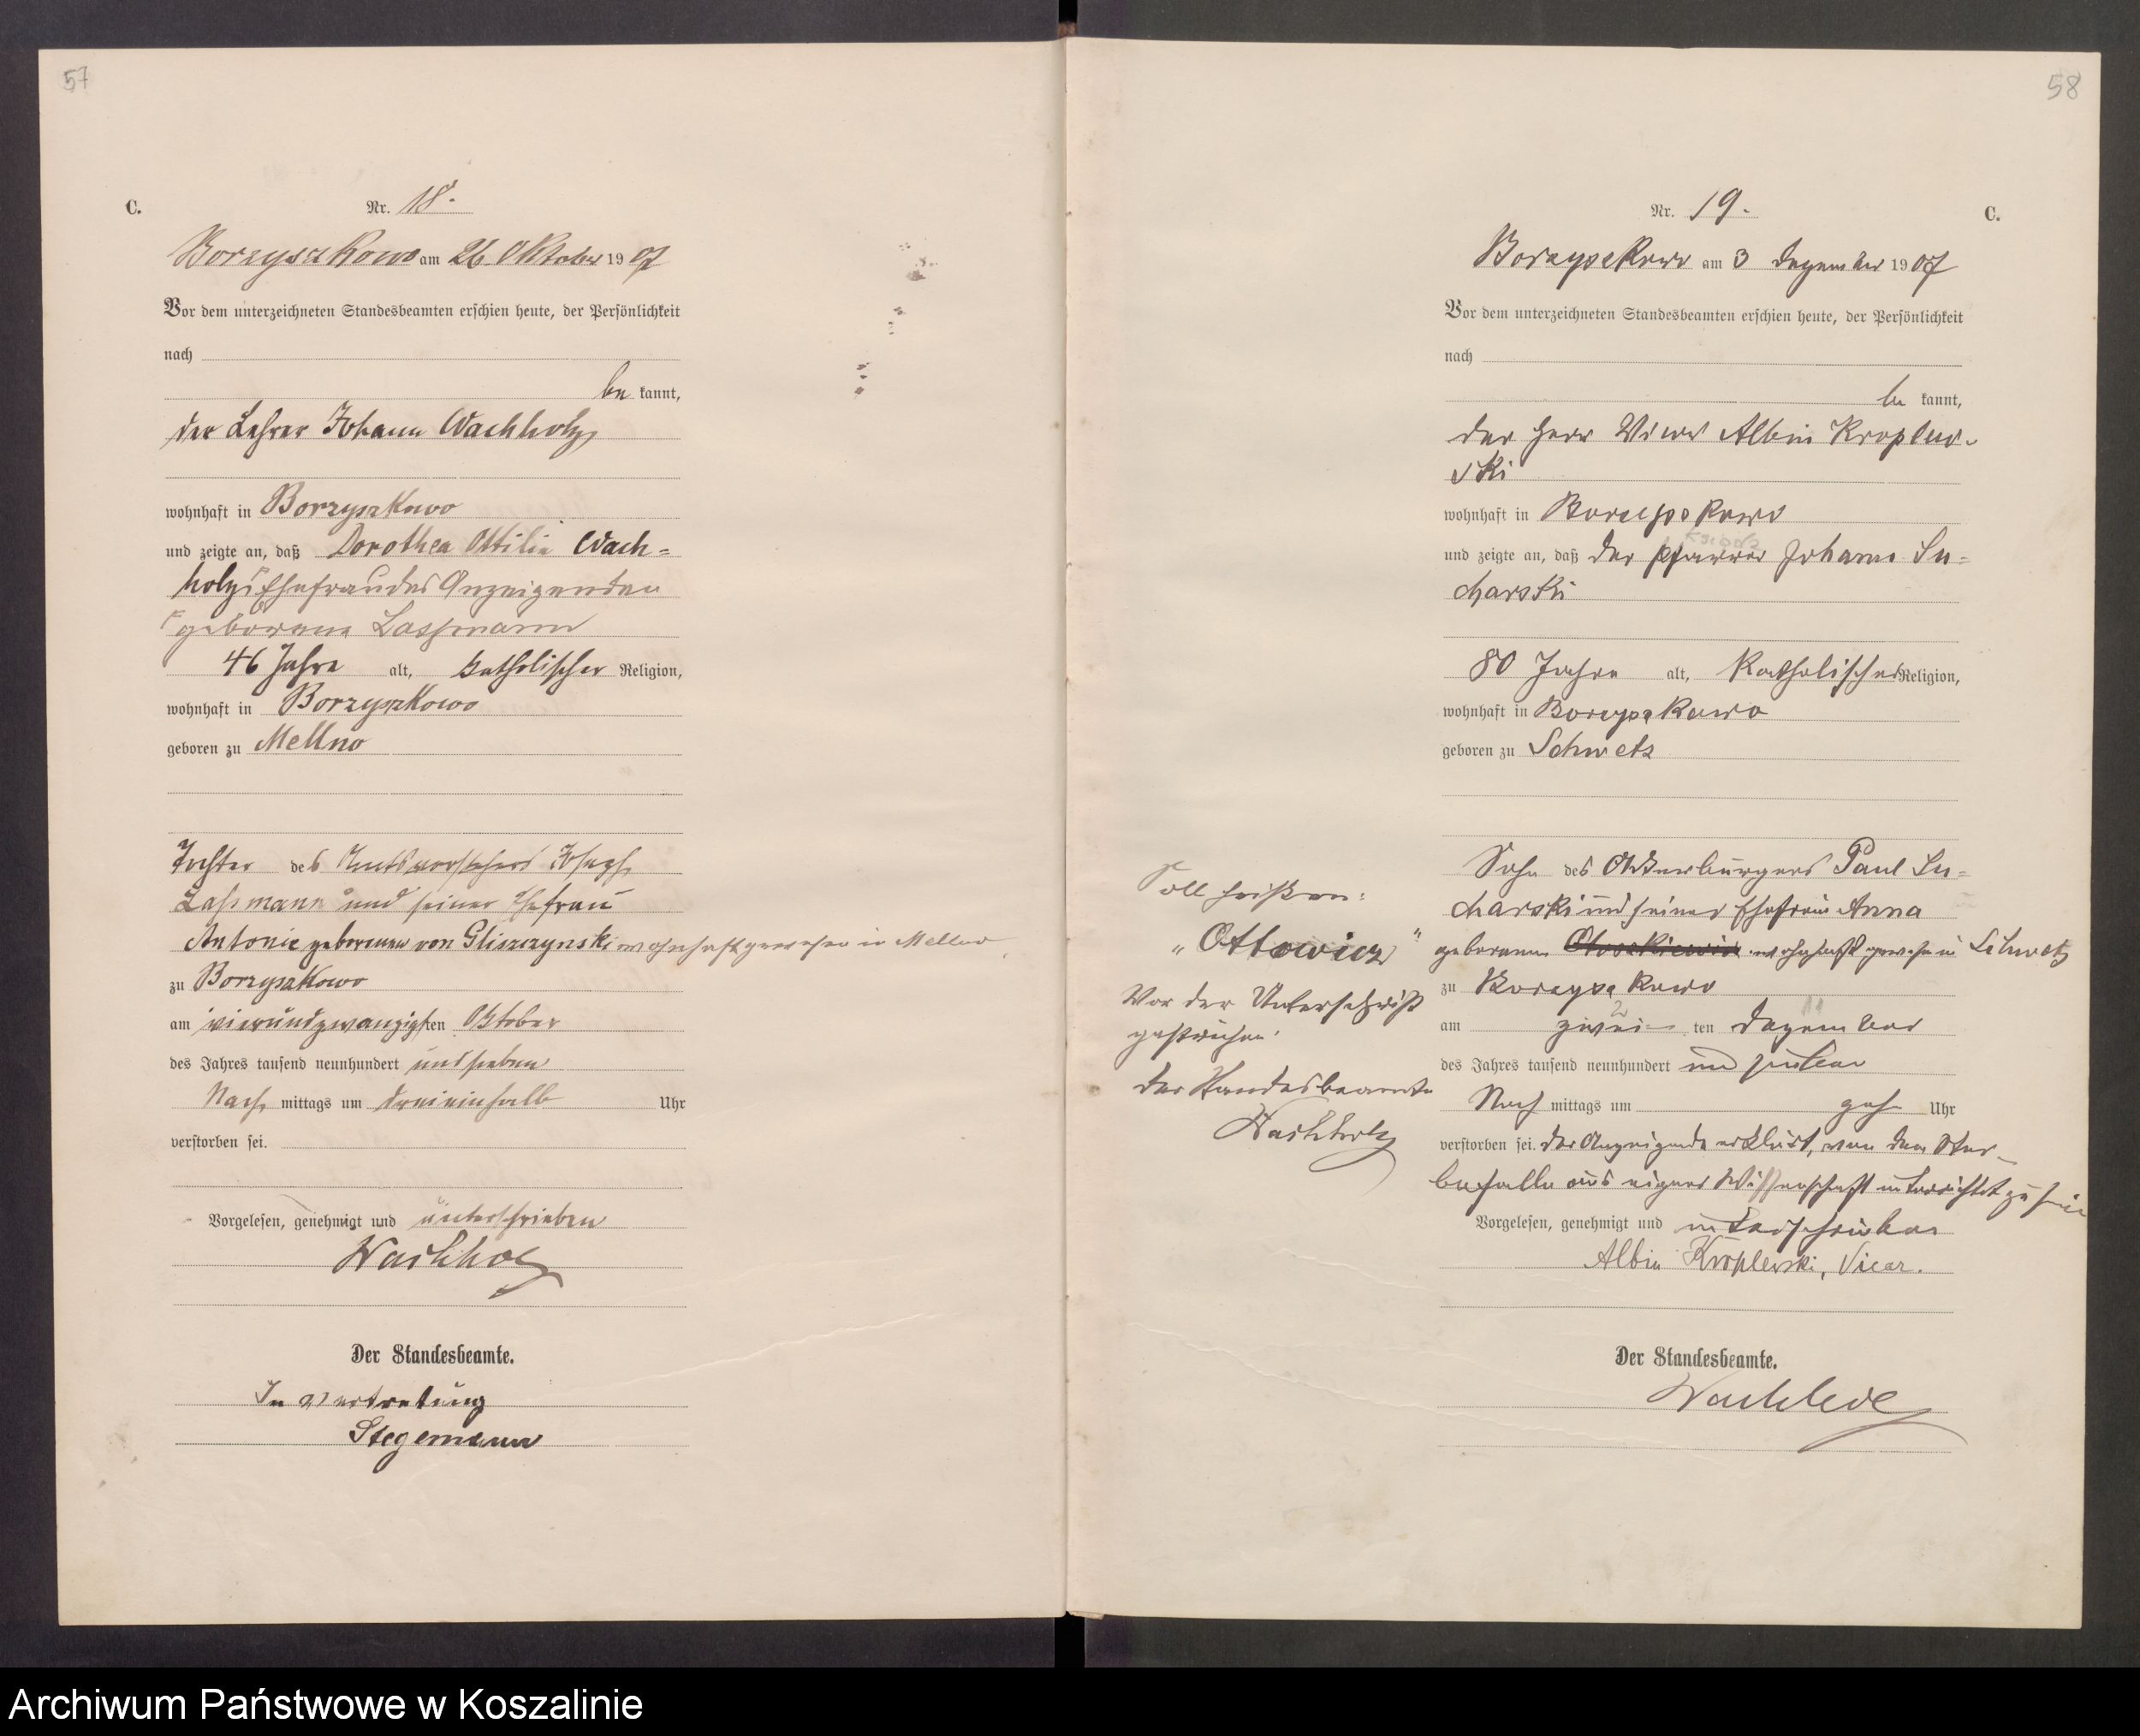 57
C.
Nr. 18.
Borzyszkowo am 26 Oktober 1907
Vor dem unterzeichneten Standesbeamten erschien heute, der Persönlichkeit
nach
be kannt,
der Lehrer Johann Wachholz,
wohnhaft in Borzyszkowo
und zeigte an, daß Dorothea Ottilie Wach=
holz Ehefrau des Anzeigenden
geborene Lassmann
46 Jahre alt, katholischer Religion,
wohnhaft in Borzyszkowo
geboren zu Mellno
Tochter des Amtsvorstehers Joseph
Lassmann und seiner Ehefrau
Antonie geborenen von Gliszczynski wohnhaft gewesen in Mellno
zu Borzyszkowo
am vierundzwanzigsten Oktober
des Jahres tausend neunhundert und sieben
Nach mittags um dreieinhalb Uhr
verstorben sei.
Vorgelesen, genehmigt und unterschrieben
Wachholz
Der Standesbeamte.
In Vertretung
Stegemann
58
Nr. 19.
C.
Borzyszkowo am 3 Dezember 1907
Vor dem unterzeichneten Standesbeamten erschien heute, der Persönlichkeit
nach
be kannt,
der Herr Vicar Albin Kroplew-
ski
wohnhaft in Borzyszkowo
und zeigte an, daß der Pfarrer Johann Su=
charski
80 Jahre alt, katholischer Religion,
wohnhaft in Borzyszkowo
geboren zu Schwetz
Sohn des Ackerbürgers Paul Su=
charski und seiner Ehefrau Anna
geborenen wohnhaft gewesen in Schwetz
zu Borzyszkowo
am zwei ten Dezember
des Jahres tausend neunhundert und sieben
Nach mittags um zehn Uhr
verstorben sei. Der Anzeigende erklärt, von dem Ster-
befalle aus eigner Wissenschaft unterrichtet zu sein
Vorgelesen, genehmigt und unterschrieben
Albin Kroplewski, Vicar.
Der Standesbeamte.
Wachholz
Soll heißen:
„Ottowicz"
Vor der Unterschrift
gestrichen.
Der Standesbeamte
Wachholz
Archiwum Państwowe w Koszalinie